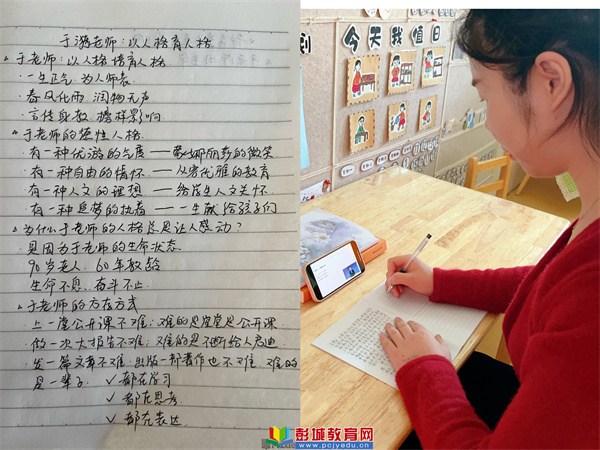 于漪老师:以人格育人格
于老师:以人格培育人格
·一生正气 为人师表
·春风化雨 润物无声
·言传身教 榜样影响
于老师的德性人格
·有一种优游的气度——蒙娜丽莎的微笑
·有一种自由的情怀——从容优雅的教育
·有一种人文的理想——给学生人文关怀
有一种追梦的执着——一生献给孩子们
为什么于老师的人格总是让人感动?
是因为于老师的生命状态
90岁老人,60年教龄
生命不息,奋斗不止
于老师的存在方式
·上一堂公开课不难;难的是堂堂是公开课
·做一次大报告不难;难的是不断给人启迪
·发一篇文章不难,出版一部著作也不难,难的
是一辈子 ✓都在学习
✓都在思考
✓都在表达
今天我值日
彭城教育网
www.pcjyedu.cn